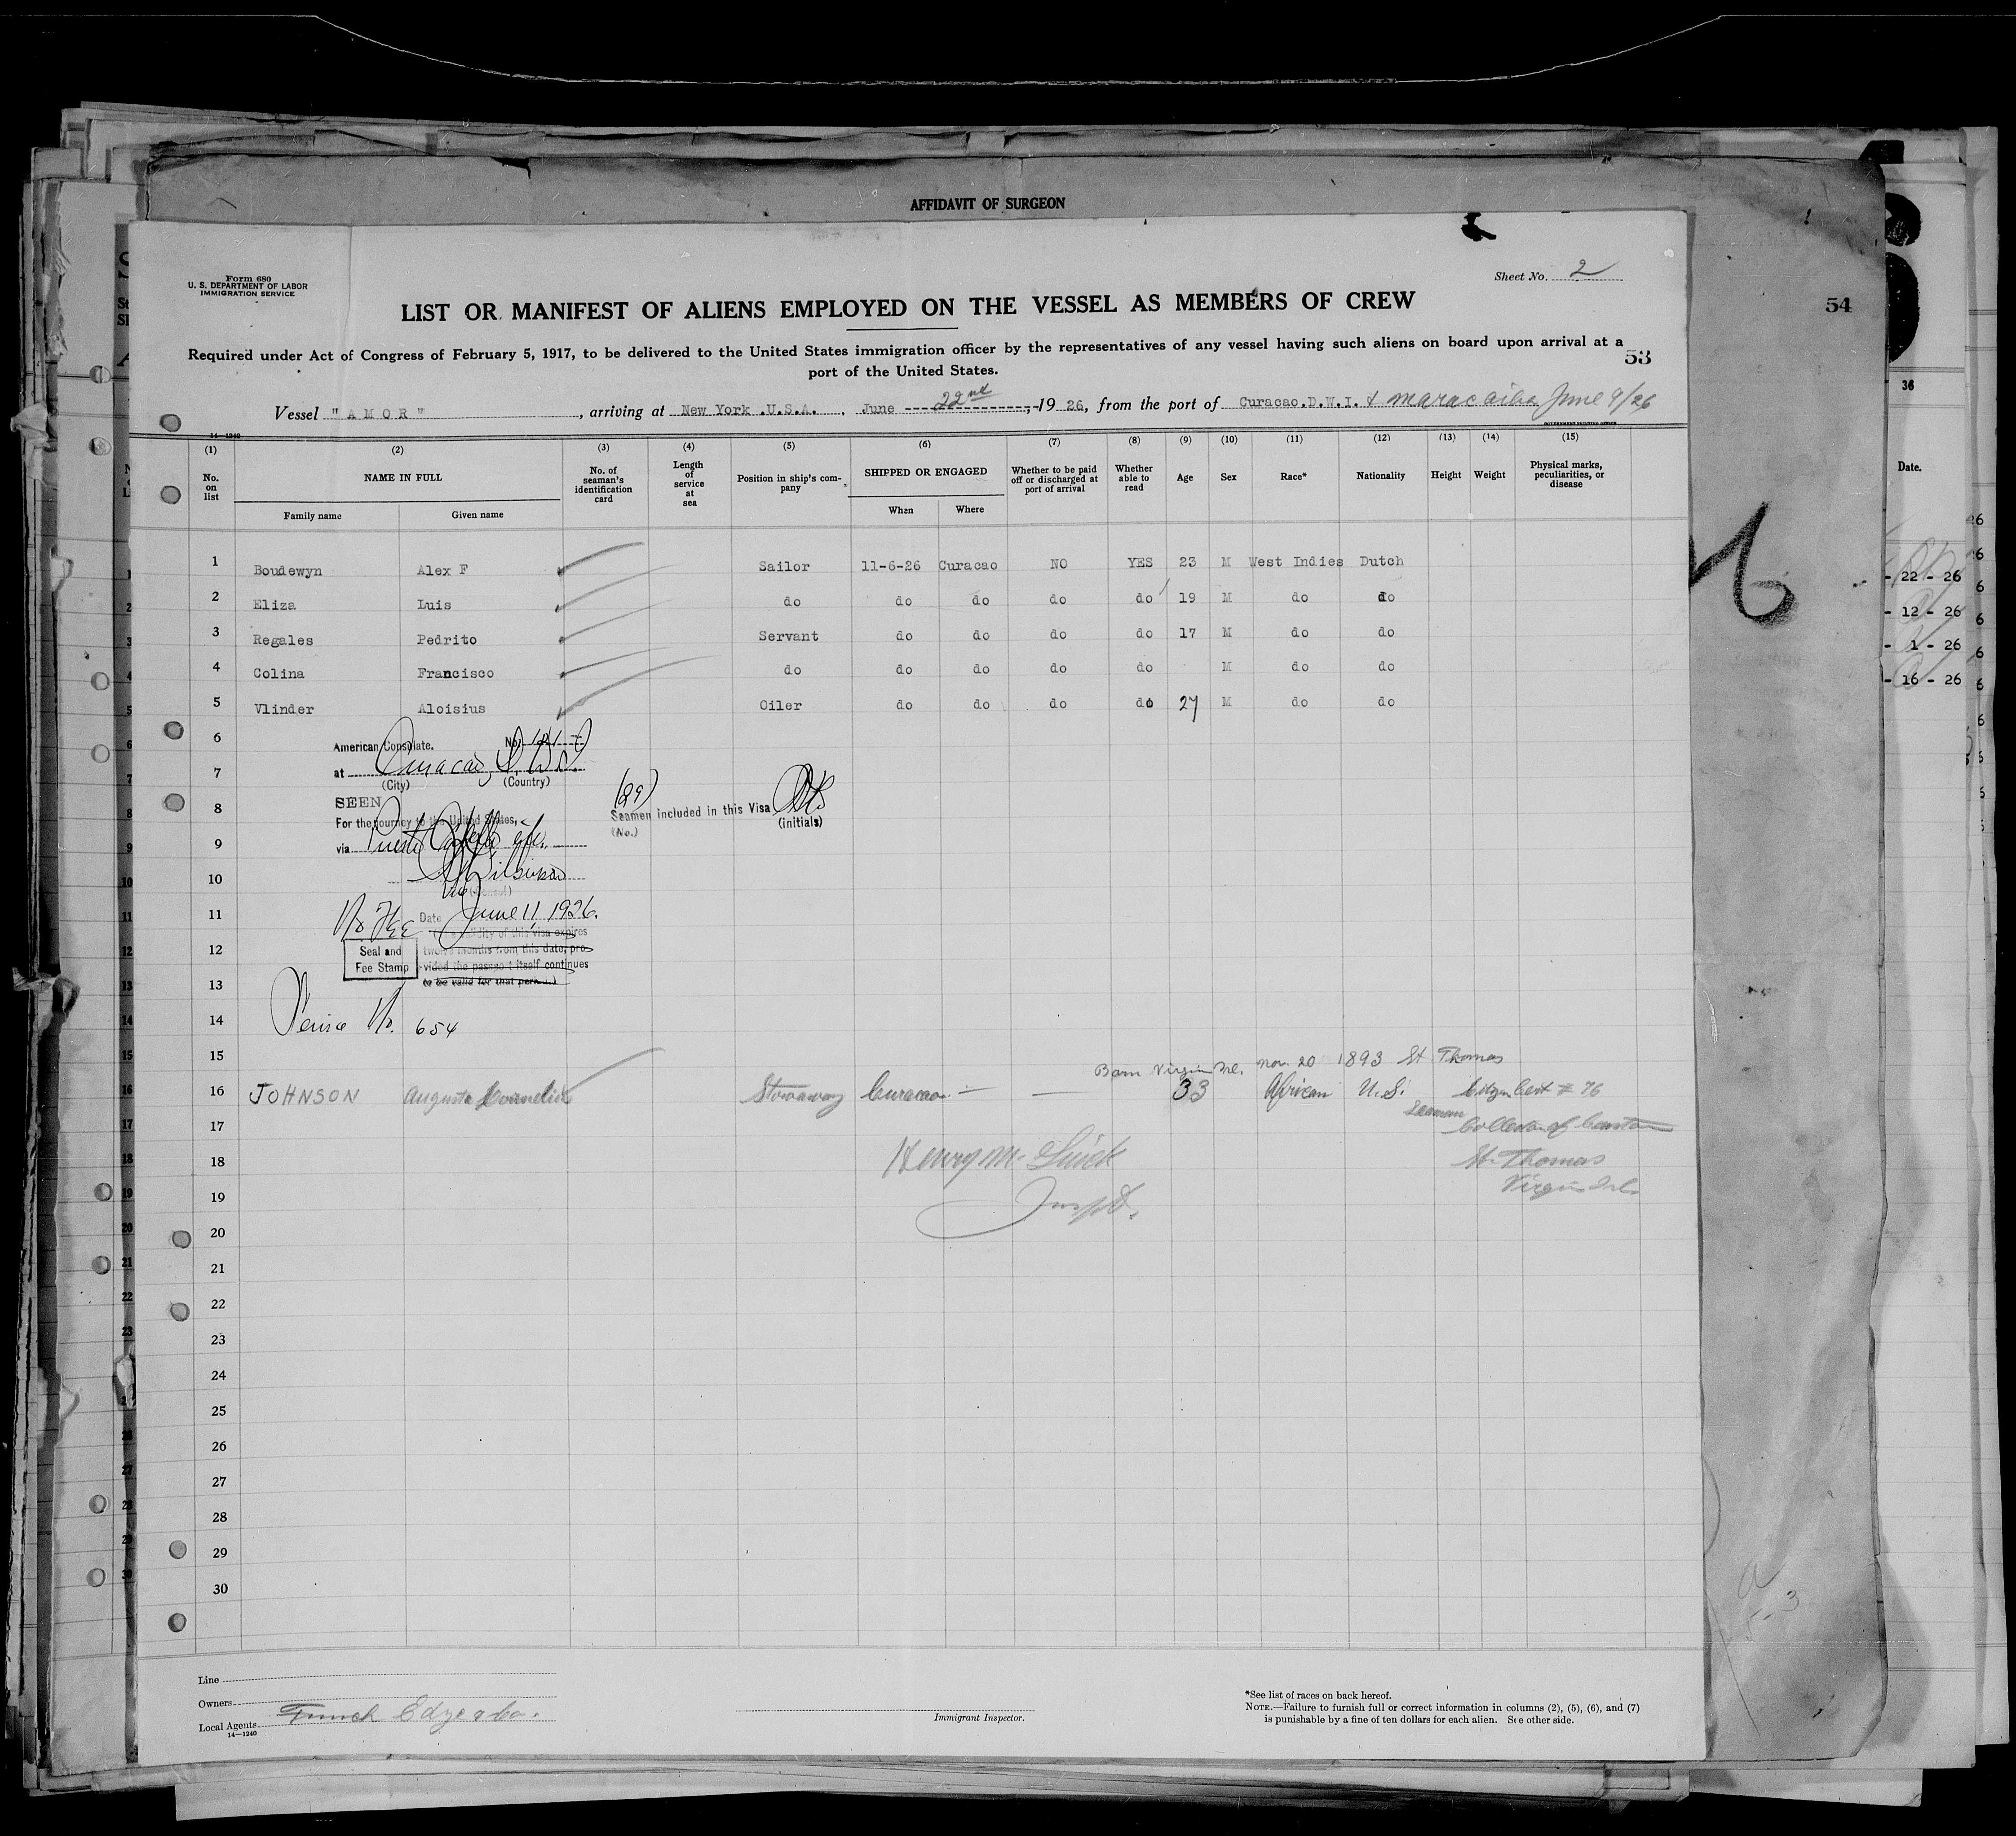 AFFIDAVIT OF SURGEON
Form 680
U. S. DEPARTMENT OF LABOR
IMMIGRATION SERVICE
Sheet No. 2
LIST OR MANIFEST OF ALIENS EMPLOYED ON THE VESSEL AS MEMBERS OF CREW
54
Required under Act of Congress of February 5, 1917, to be delivered to the United States immigration officer by the representatives of any vessel having such aliens on board upon arrival at a
port of the United States.
53
Vessel "AMOR", arriving at New York U.S.A., June 22nd, 1926, from the port of Curacao.D.W.I. & Maracaibo June 9/26
14—1240
GOVERNMENT PRINTING OFFICE
(1) (2) (3) (4) (5) (6) (7) (8) (9) (10) (11) (12) (13) (14) (15)
No. on list
NAME IN FULL
Family name
Given name
No. of seaman's identification card
Length of service at sea
Position in ship's company
SHIPPED OR ENGAGED
When
Where
Whether to be paid off or discharged at port of arrival
Whether able to read
Age
Sex
Race*
Nationality
Height
Weight
Physical marks, peculiarities, or disease
1 Boudewyn Alex F Sailor 11-6-26 Curacao NO YES 23 M West Indies Dutch
2 Eliza Luis do do do do do 19 M do do
3 Regales Pedrito Servant do do do do 17 M do do
4 Colina Francisco do do do do do M do do
5 Vlinder Aloisius Oiler do do do do 27 M do do
6
American Consulate. No.
7
at Curacao, D.W.I.
(City) (Country)
8
SEEN
For the journey to the United States,
(29)
Seamen included in this Visa
(No.) (initials)
9
via Puerto
10
11
No Fee Date June 11, 1926.
(The validity of this visa expires
12
Seal and Fee Stamp
twelve months from this date, pro-
vided the passport itself continues
to be valid for that period.)
13
14
No. 654
15
Born Virgin Isl. Nov. 20 1893 St Thomas
16 JOHNSON Augusta Cornelius Stowaway Curacao — — 33 African U.S. Citizen Cert # 76
Seaman
17
Collector of Customs
18
Henry M.
St. Thomas
19
Inspt.
Virgin Isl.
20
21
22
23
24
25
26
27
28
29
30
Line
Owners
Local Agents Funch Edye & Co.
14—1240
Immigrant Inspector.
*See list of races on back hereof.
NOTE.—Failure to furnish full or correct information in columns (2), (5), (6), and (7)
is punishable by a fine of ten dollars for each alien. See other side.
36
Date.
- 22 - 26
- 12 - 26
- 1 - 26
- 16 - 26